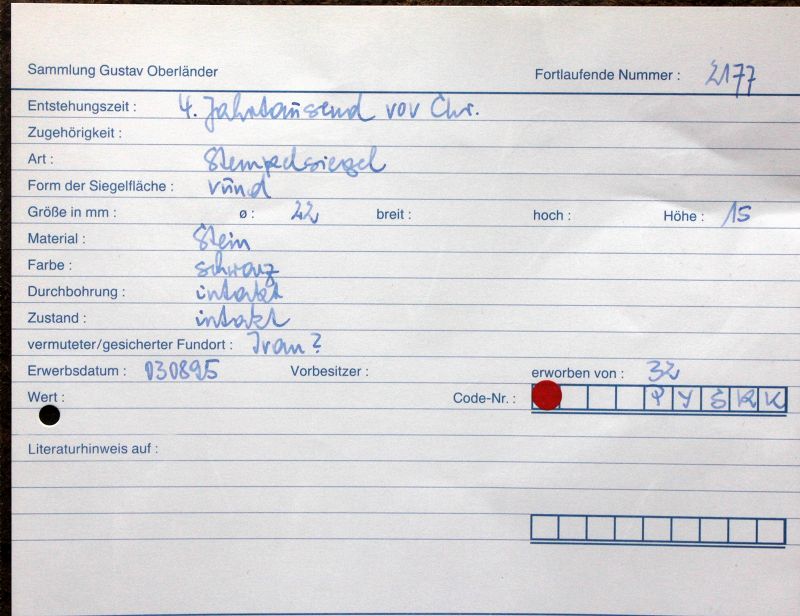 Sammlung Gustav Oberländer Fortlaufende Nummer : 2177
Entstehungszeit : 4. Jahrtausend vor Chr.
Zugehörigkeit :
Art : Stempelsiegel
Form der Siegelfläche : rund
Größe in mm : ø : 22 breit : hoch : Höhe : 15
Material : Stein
Farbe : schwarz
Durchbohrung : intakt
Zustand : intakt
vermuteter/gesicherter Fundort : Iran?
Erwerbsdatum : 030895 Vorbesitzer : erworben von : 32
Wert : Code-Nr. :
Literaturhinweis auf :